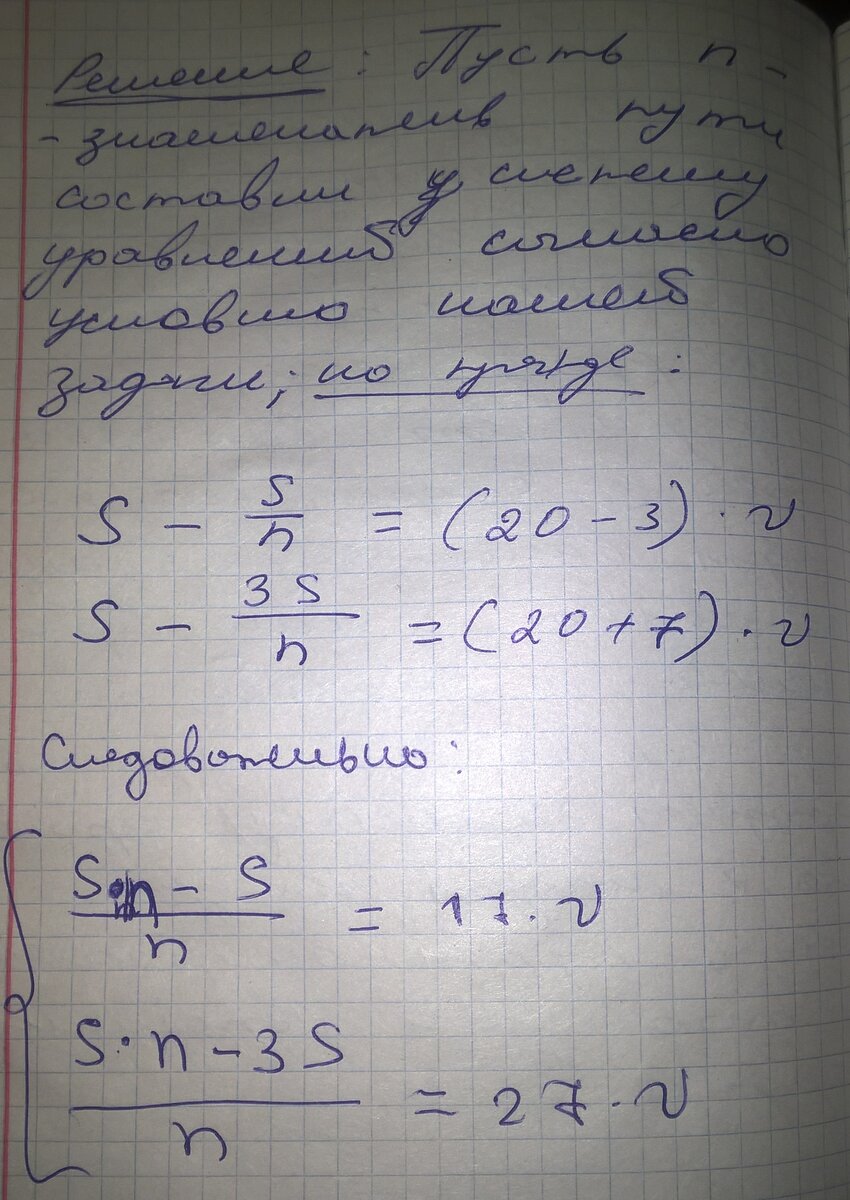 Решение: Пусть n-
- знаменатель пути
составим систему
уравнений согласно
условию нашей
задачи;
S - S/n = (20 - 3) · v
S - 3S/n = (20 + 7) · v
Следовательно:
(S·n - S)/n = 17 · v
(S·n - 3S)/n = 27 · v